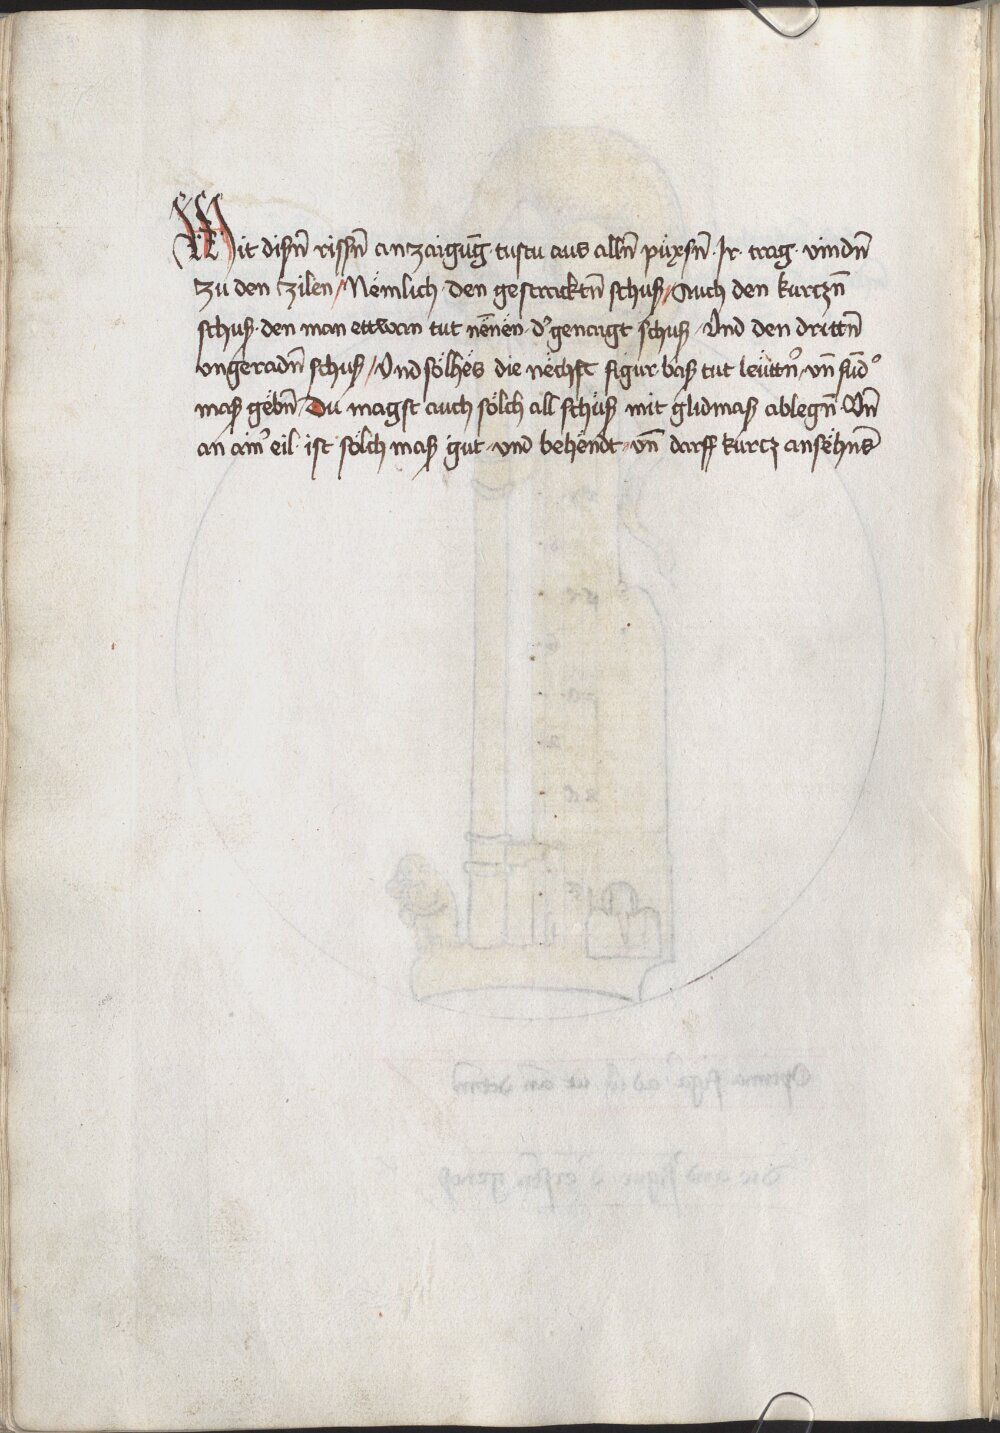 Mit disen̄ rissen̄ anzaigūg tustu aus allen̄ püxsen̄ · Jr · trag · vinden̄
zu den zilen / Nemlich · den gestrackten̄ schuß / Auch den kurczn̄
schuß · den man ettwan tut nēnen · d' genaigt schuß / Vnd den drittn̄
vngeradn̄ schuß / Vnd sölhes die nechst figur baß tut leüttn' · vn̄ sūd'
maß gebn̄ / Du magst auch sölch all schüß mit glidmaß ablegn̄ · Vn̄
an aim' eil · ist sölch maß gut · vnd behendt · vn̄ darff kurcz ansehns